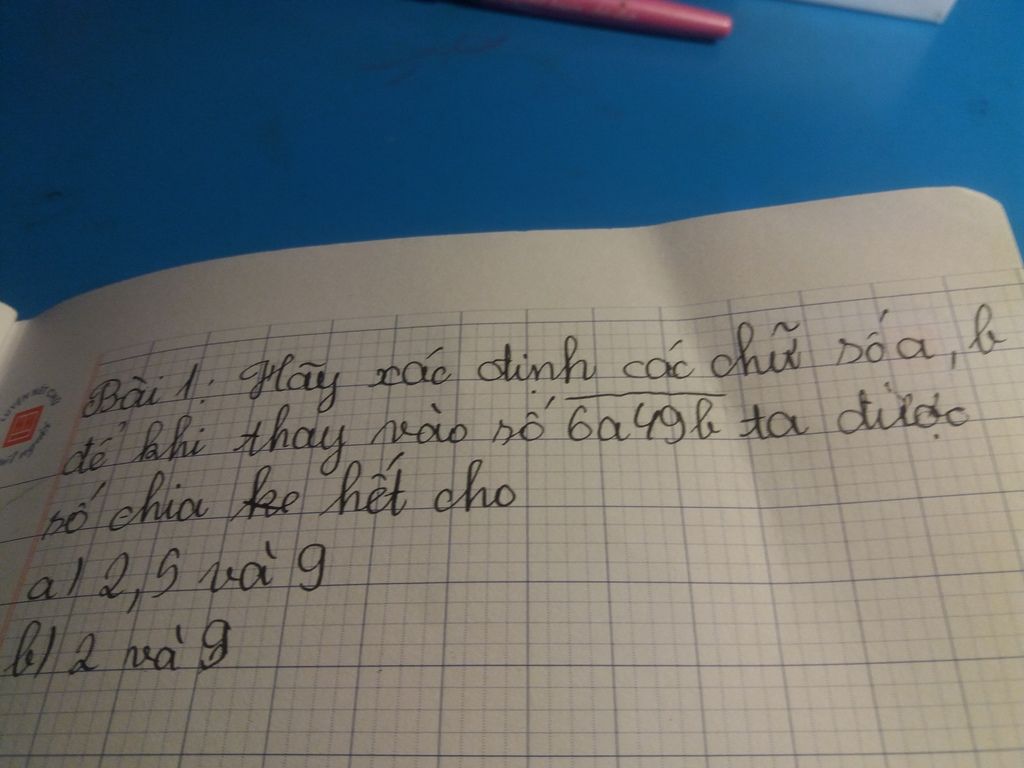 Bài 1: Hãy xác định các chữ số a, b
để khi thay vào số 6a49b ta được
số chia hết cho
a) 2, 5 và 9
b) 2 và 9